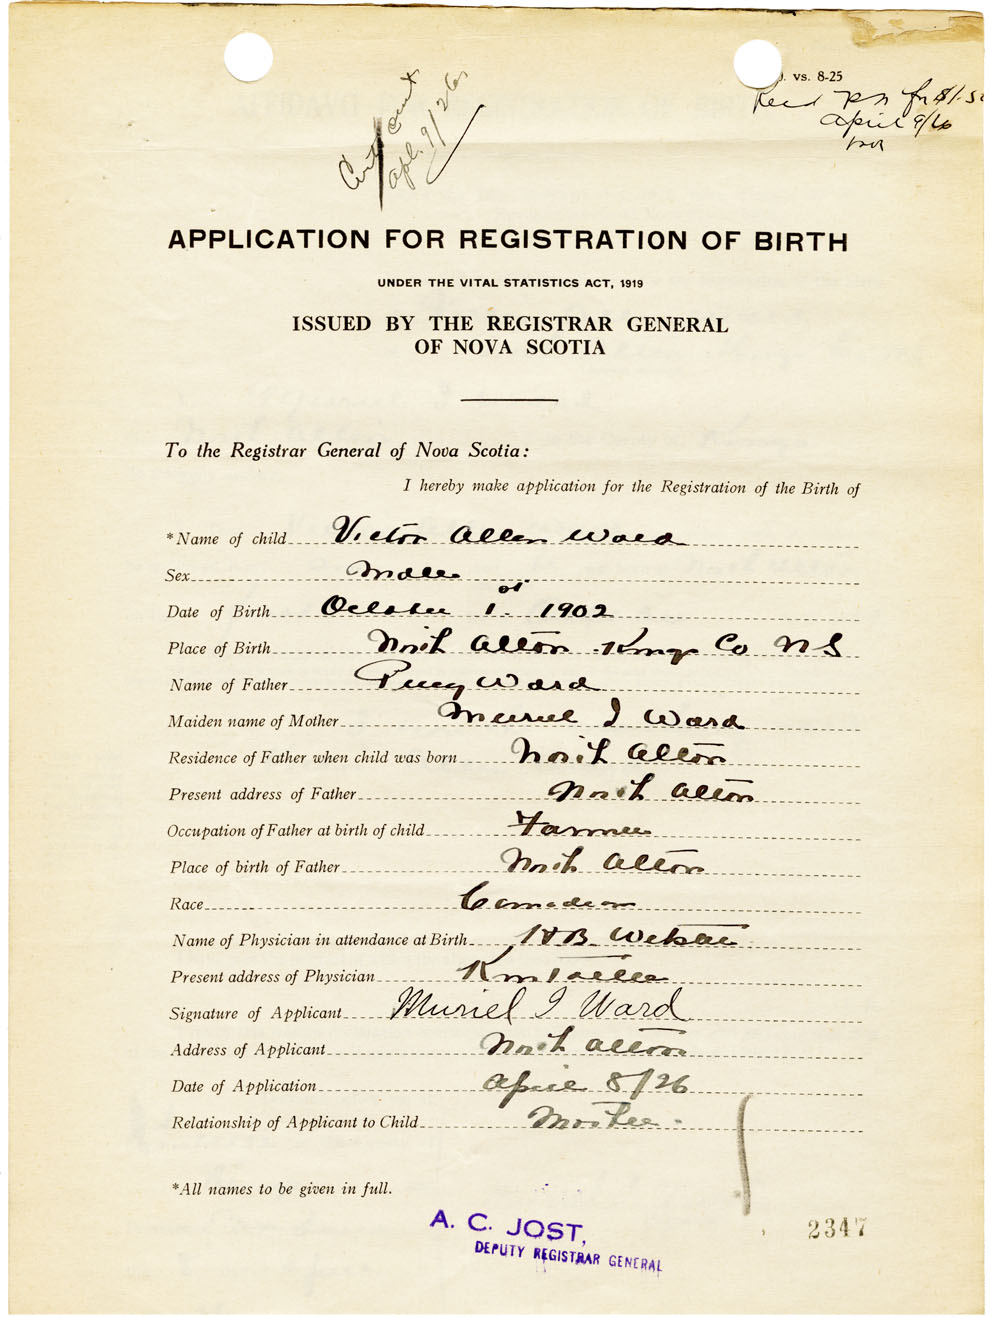 . vs. 8-25
Recd P.N. for $1.50
April 9/26
Cert sent
apl. 9/26
APPLICATION FOR REGISTRATION OF BIRTH
UNDER THE VITAL STATISTICS ACT, 1919
ISSUED BY THE REGISTRAR GENERAL
OF NOVA SCOTIA
To the Registrar General of Nova Scotia:
I hereby make application for the Registration of the Birth of
*Name of child Victor Allen Ward
Sex Male
Date of Birth October 1st 1902
Place of Birth North Alton Kings Co N S
Name of Father Percy Ward
Maiden name of Mother Muriel I Ward
Residence of Father when child was born North Alton
Present address of Father North Alton
Occupation of Father at birth of child Farmer
Place of birth of Father North Alton
Race Canadian
Name of Physician in attendance at Birth H B Webster
Present address of Physician Kentville
Signature of Applicant Muriel I Ward
Address of Applicant North Alton
Date of Application April 8/26
Relationship of Applicant to Child Mother.
*All names to be given in full.
A. C. JOST,
DEPUTY REGISTRAR GENERAL
2347